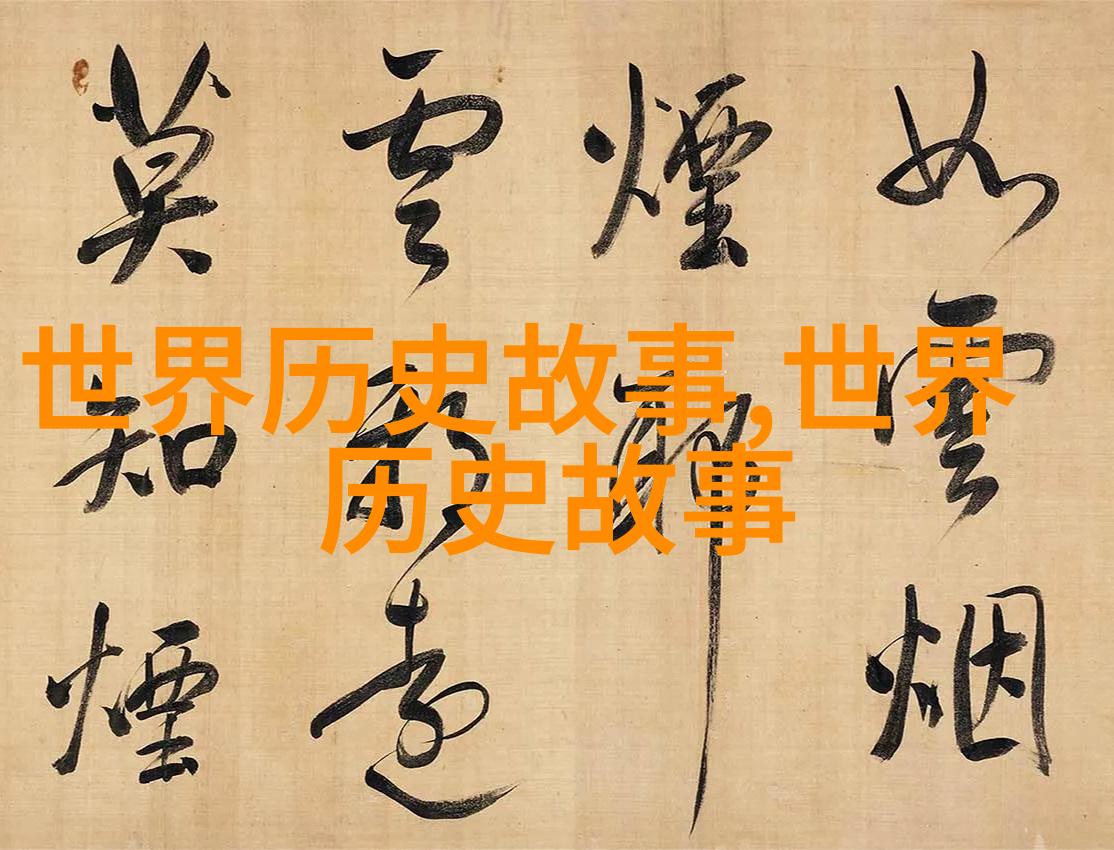 世界历史故事,世界
历史故事
如雲烟
煙
雲遠
莫知煙